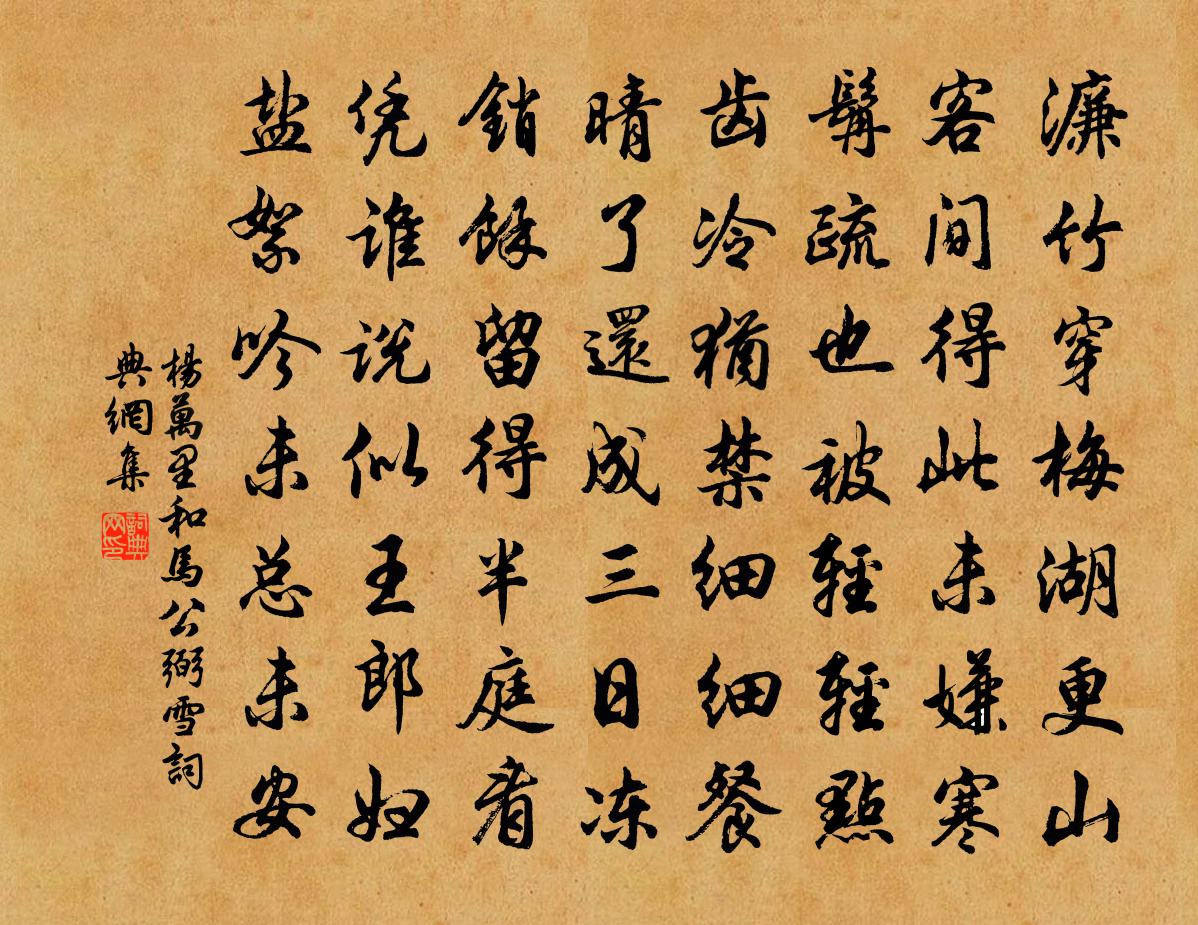 濂竹穿梅湖更山
客间得此未嫌寒
鬢疏也被輕輕點
齿冷猶禁细细餐
晴了還成三日冻
銷餘留得半庭看
凭誰説似王郎妇
盐絮吟未总未安
楊萬里和馬公弼雪詞
典網集
詞典网印